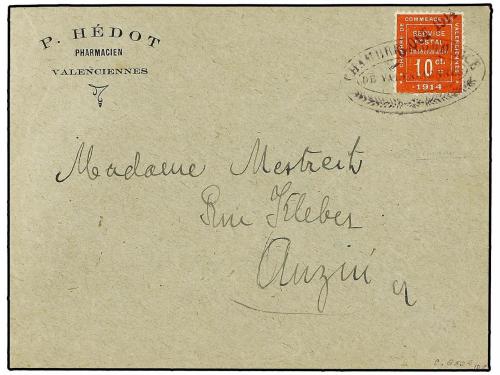 P. HÉDOT
PHARMACIEN
VALENCIENNES
CHAMBRE DE COMMERCE
VALENCIENNES
SERVICE
POSTAL
10 ct.
1914
CHAMBRE
DE VALENCIENNES
Madame Mestreit
Rue Kleber
Anzin